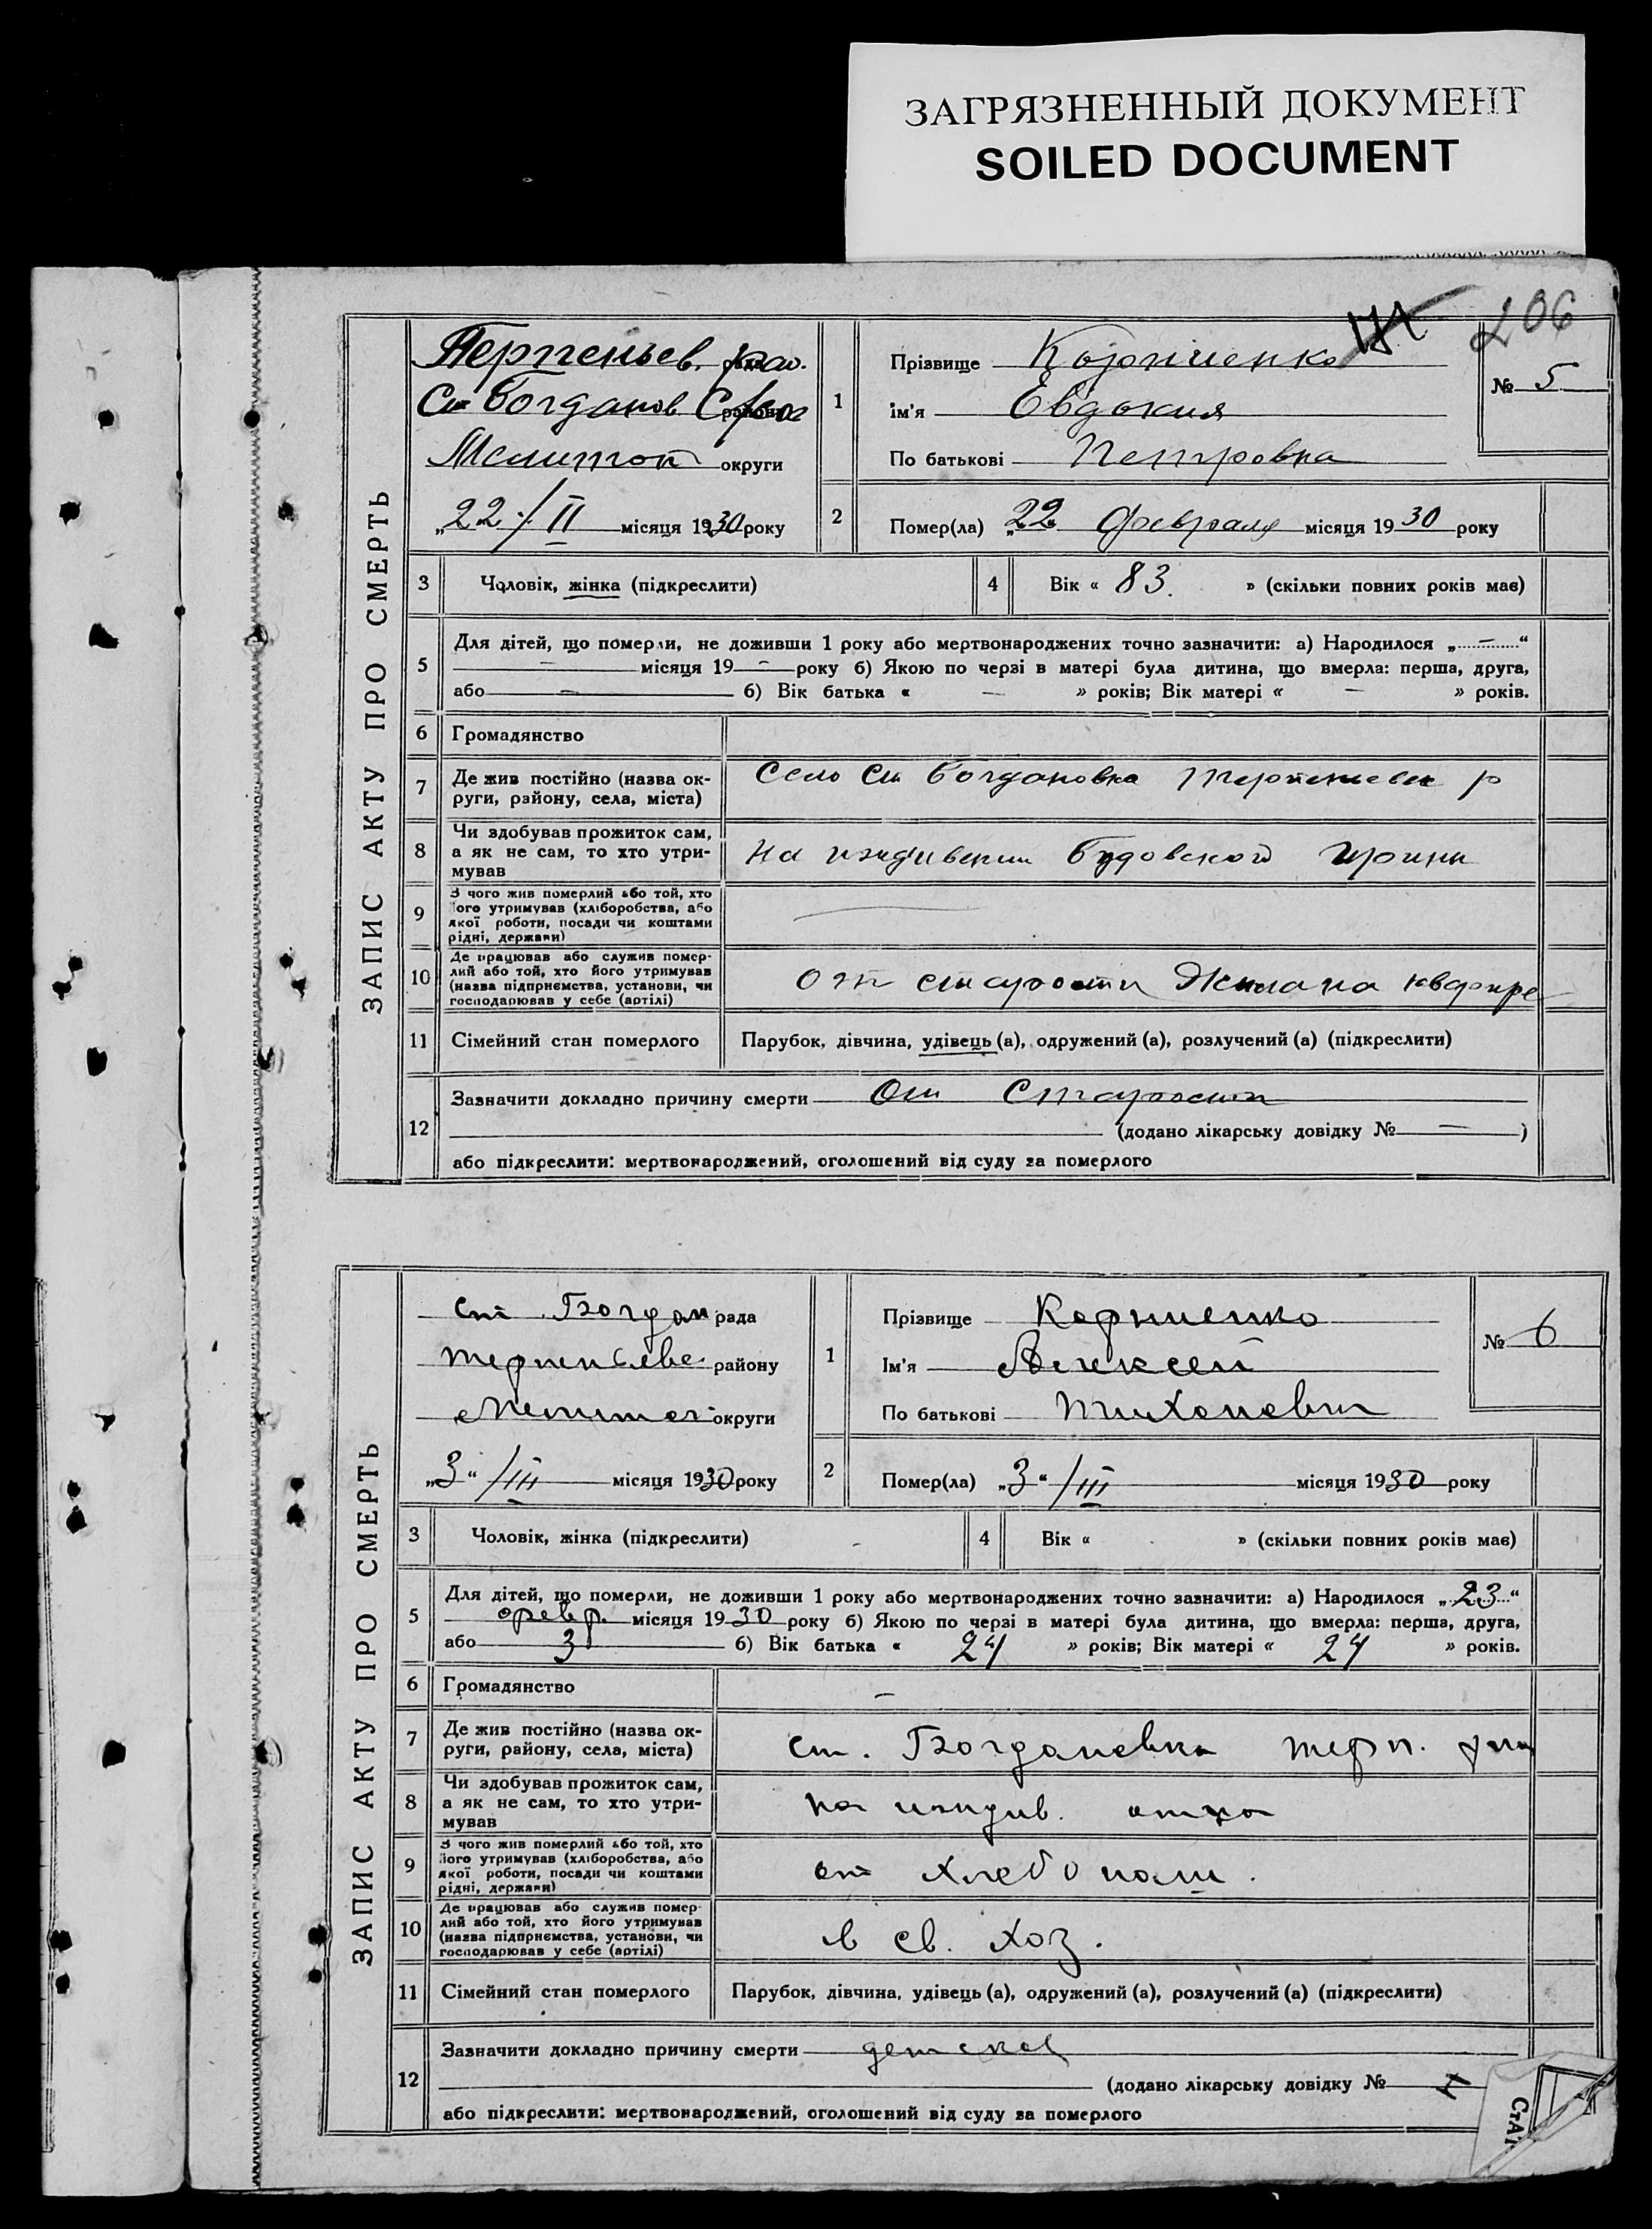 ЗАГРЯЗНЕННЫЙ ДОКУМЕНТ
SOILED DOCUMENT
206
ЗАПИС АКТУ ПРО СМЕРТЬ
Терпеньев. рай.
Ст Богданов С/рада
Мелитоп округи
„22./II місяця 1930 року
1
Прізвище Корниенко
ім'я Евдокия
По батькові Петровна
№ 5
2
Помер(ла) „22 февраля місяця 1930 року
3 Чоловік, жінка (підкреслити)
4 Вік « 83. » (скільки повних років має)
5
Для дітей, що померли, не доживши 1 року або мертвонароджених точно зазначити: а) Народилося „ — “
— місяця 19 — року б) Якою по черзі в матері була дитина, що вмерла: перша, друга,
або — б) Вік батька « — » років; Вік матері « — » років.
6 Громадянство
7
Де жив постійно (назва ок-
руги, району, села, міста)
Село Ст Богдановка р
8
Чи здобував прожиток сам,
а як не сам, то хто утри-
мував
На иждивении
9
З чого жив померлий або той, хто
його утримував (хліборобства, або
якої роботи, посади чи коштами
рідні, держави)
10
Де працював або служив помер-
лий або той, хто його утримував
(назва підприємства, установи, чи
господарював у себе (артілі)
от старости Жила на кварире
11 Сімейний стан померлого
Парубок, дівчина, удівець (а), одружений (а), розлучений (а) (підкреслити)
12
Зазначити докладно причину смерти От Старости
(додано лікарську довідку № — )
або підкреслити: мертвонароджений, оголошений від суду за померлого
ЗАПИС АКТУ ПРО СМЕРТЬ
Ст. Богдан рада
Терпеньеве району
Мелитоп округи
„3“ /III місяця 1930 року
1
Прізвище Корниенко
Ім'я Алексей
По батькові Тихонович
№ 6
2
Помер(ла) „3“ /III місяця 1930 року
3 Чоловік, жінка (підкреслити)
4 Вік « » (скільки повних років має)
5
Для дітей, що померли, не доживши 1 року або мертвонароджених точно зазначити: а) Народилося „23“
февр. місяця 1930 року б) Якою по черзі в матері була дитина, що вмерла: перша, друга,
або 3 б) Вік батька « 24 » років; Вік матері « 24 » років.
6 Громадянство —
7
Де жив постійно (назва ок-
руги, району, села, міста)
ст. Богдановка терп. рна
8
Чи здобував прожиток сам,
а як не сам, то хто утри-
мував
на иждив. отца
9
З чого жив померлий або той, хто
його утримував (хліборобства, або
якої роботи, посади чи коштами
рідні, держави)
от хлебопаш.
10
Де працював або служив помер-
лий або той, хто його утримував
(назва підприємства, установи, чи
господарював у себе (артілі)
в св. хоз.
11 Сімейний стан померлого
Парубок, дівчина, удівець (а), одружений (а), розлучений (а) (підкреслити)
12
Зазначити докладно причину смерти детская
(додано лікарську довідку №
або підкреслити: мертвонароджений, оголошений від суду за померлого
СтАТ